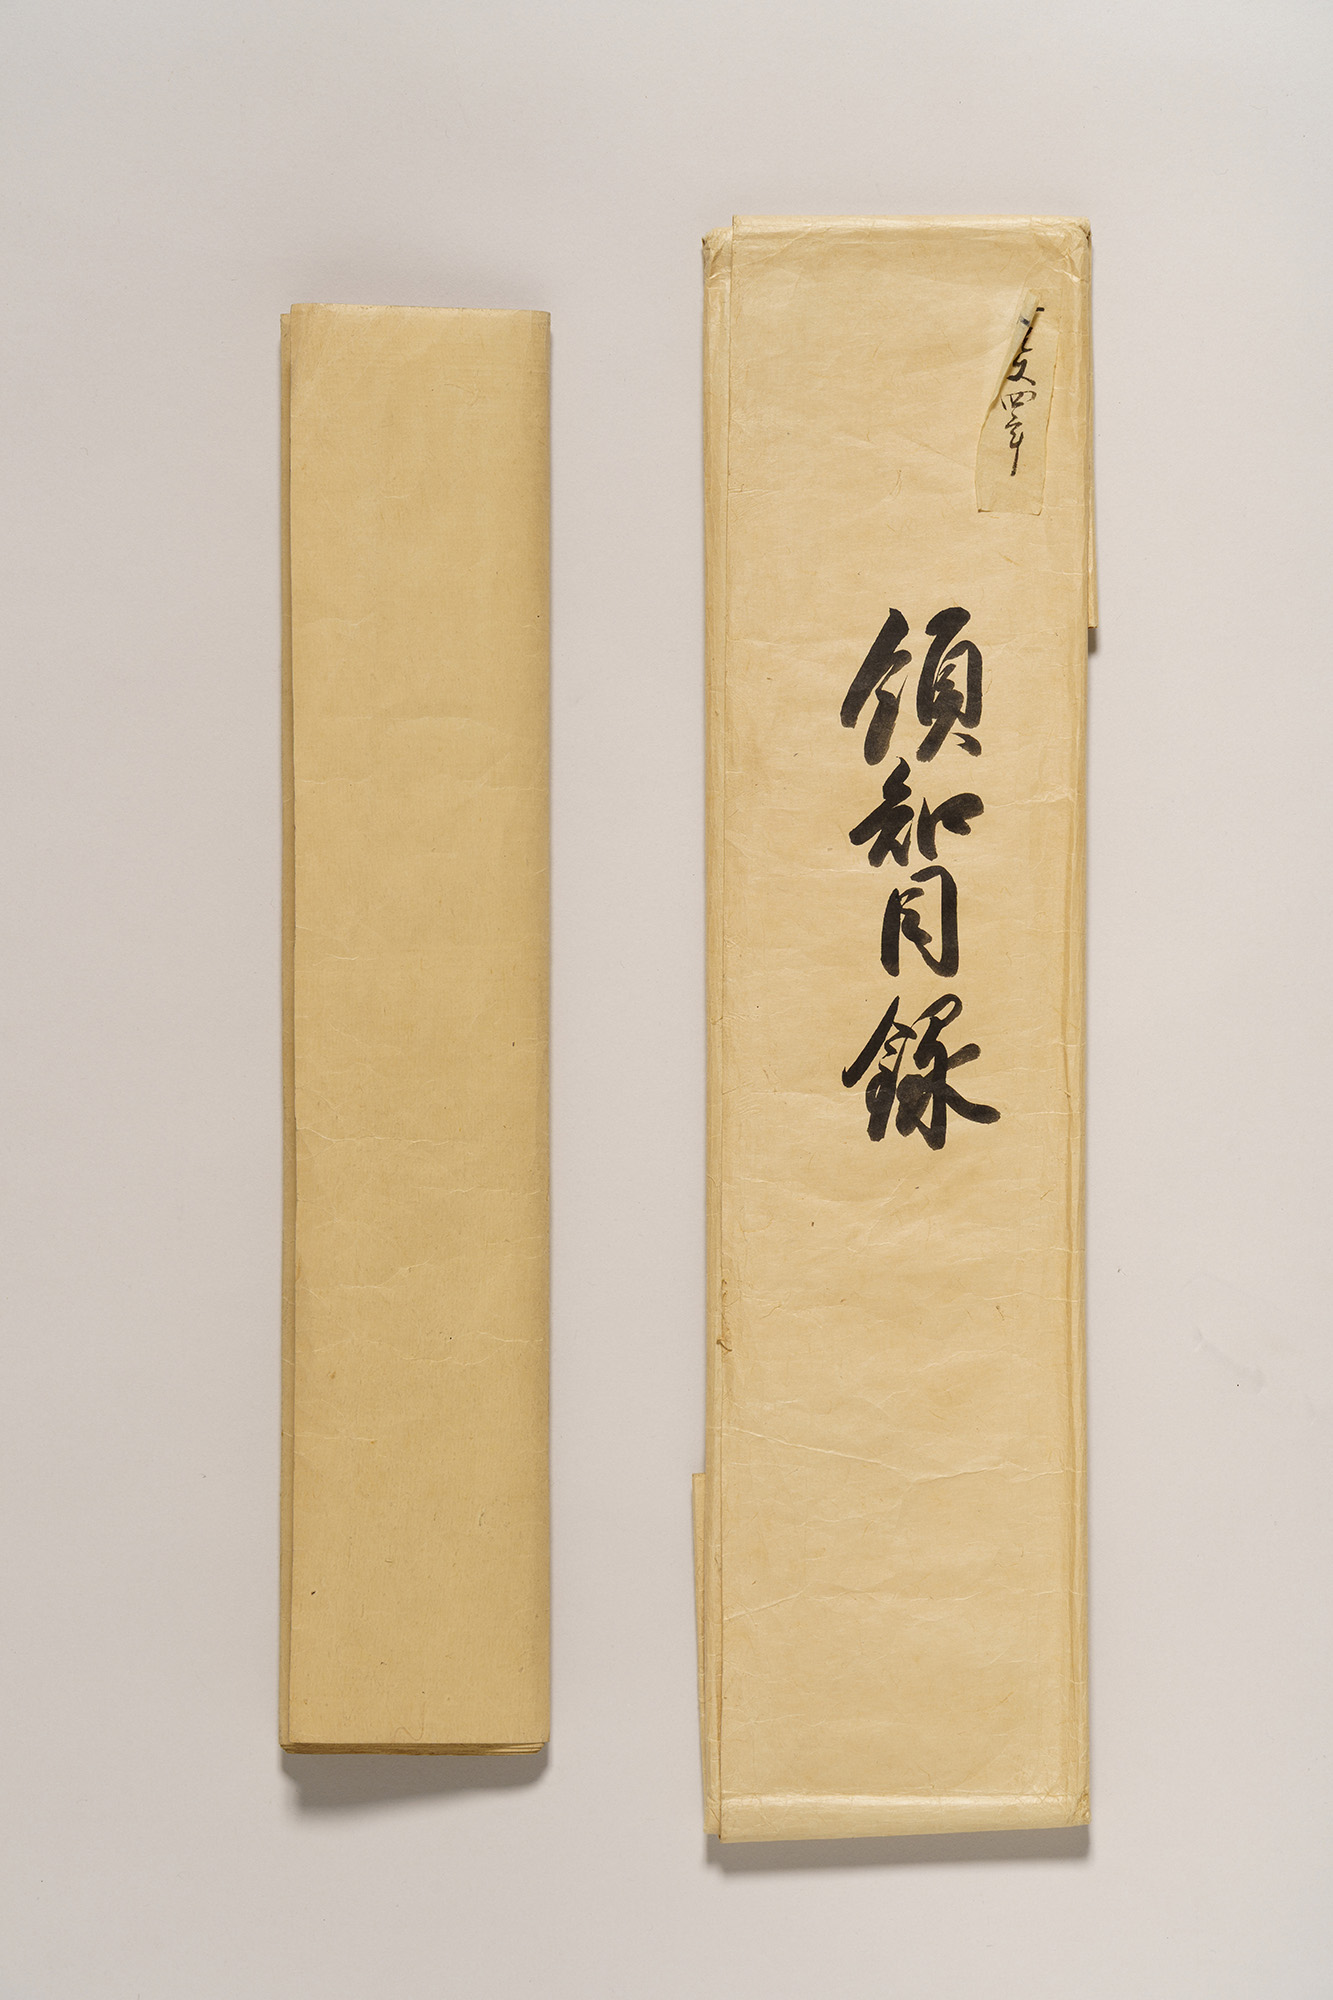 文四年
領知目録